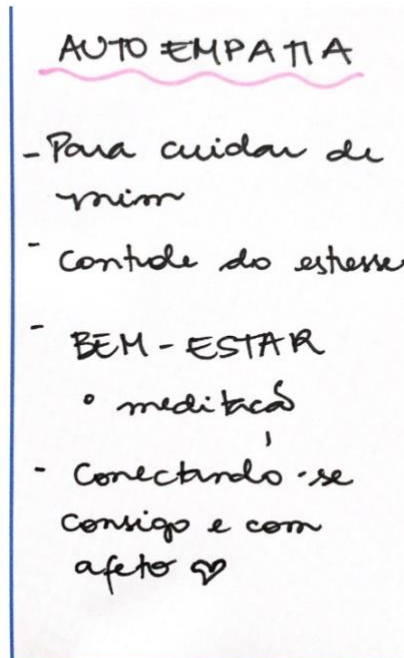 AUTO EMPATIA
- Para cuidar de
mim
- Controle do estresse
- BEM-ESTAR
° meditação
- Conectando-se
consigo e com
afeto ♡